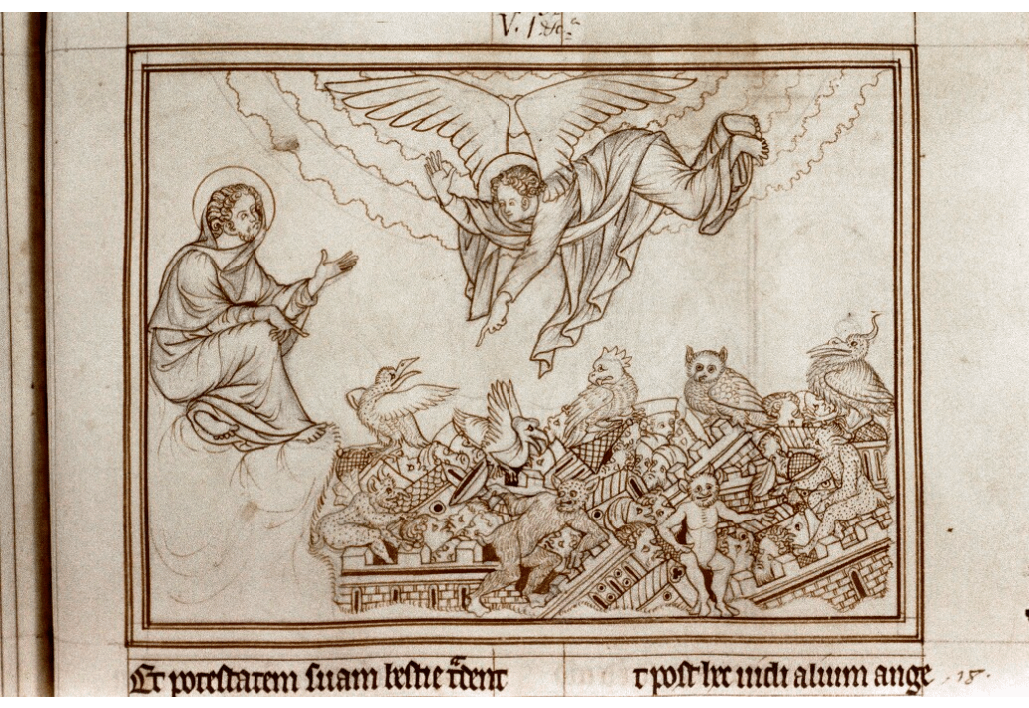 Et potestatem suam bestie tradent
t post hec uidi alium ange
18.